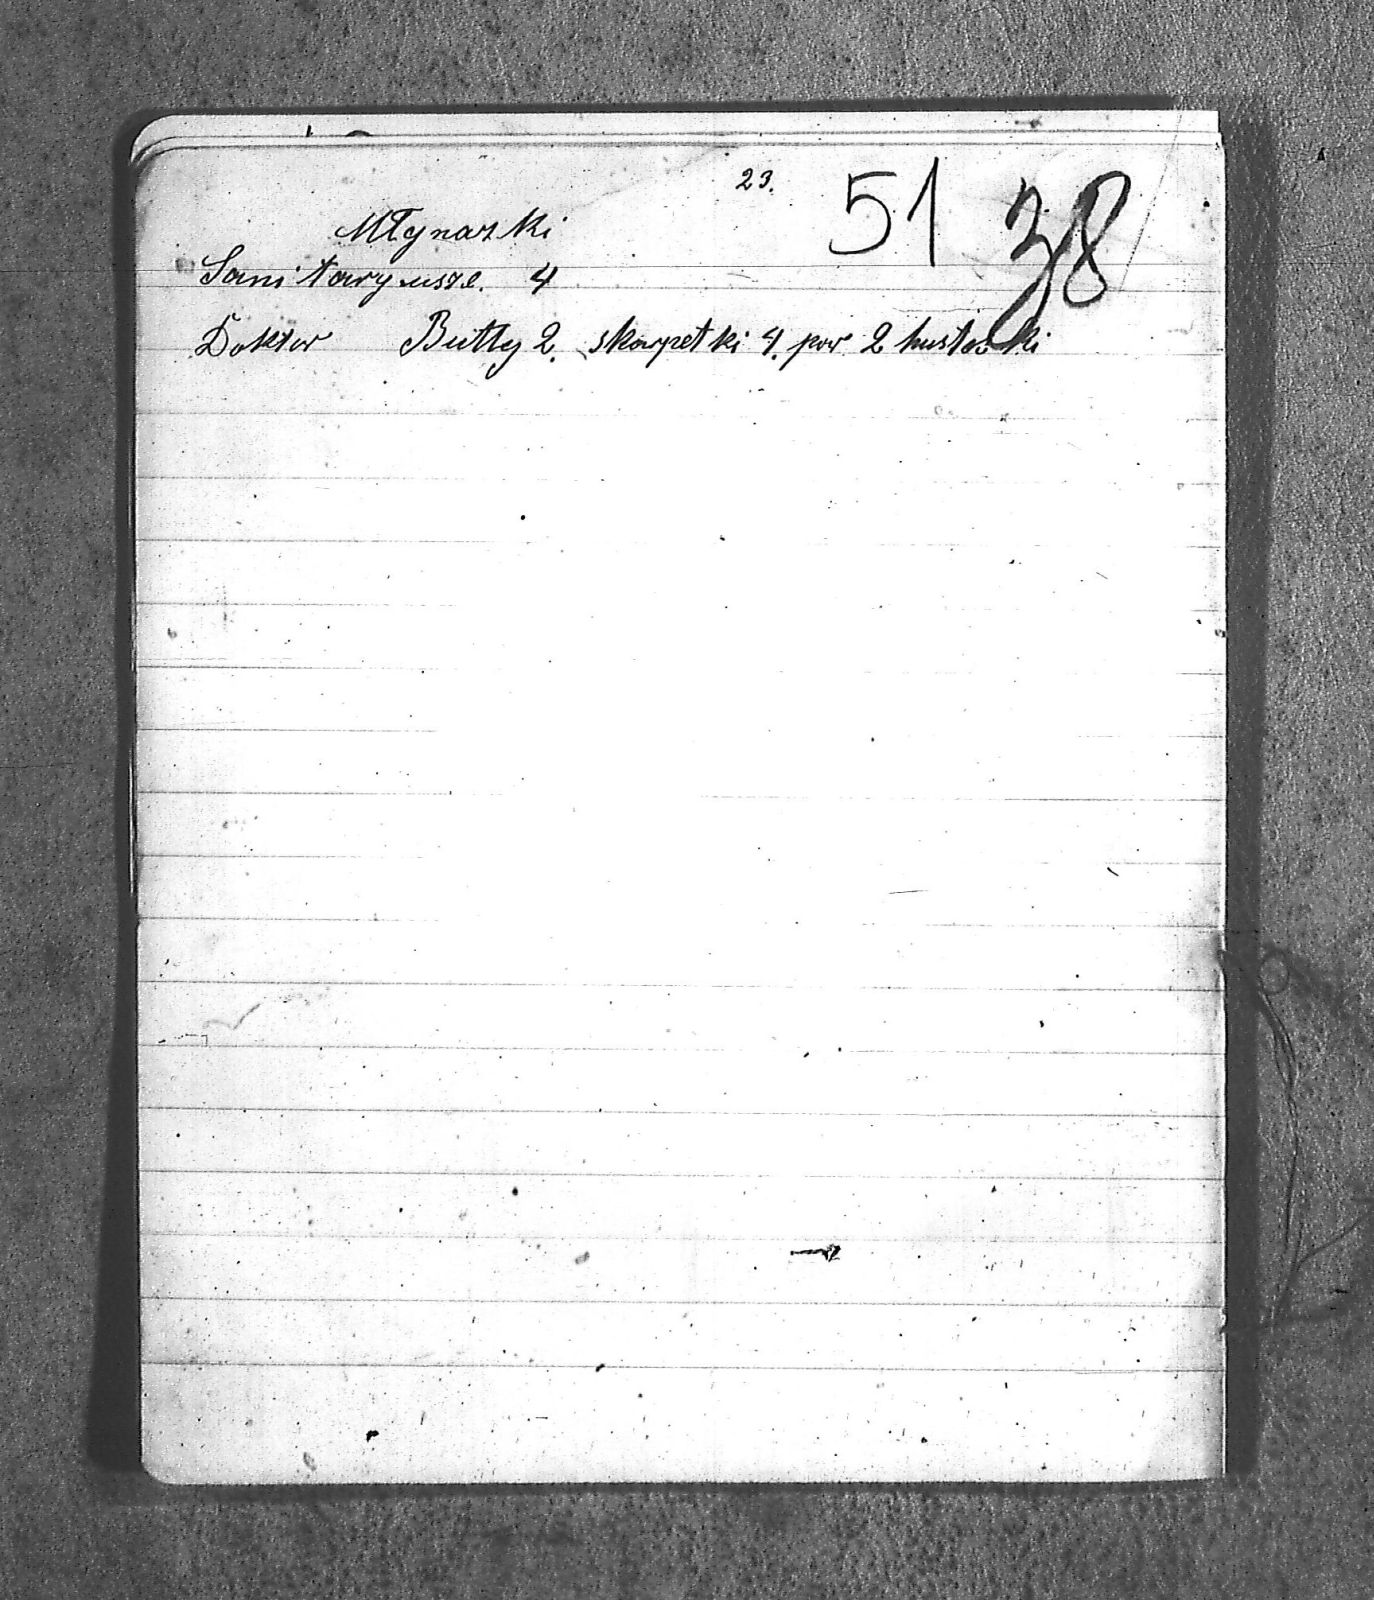 23. 51 38
Młynarzki
Sanitaryusze. 4
Doktor Butty 2. skarpetki 4. par 2 husteczki